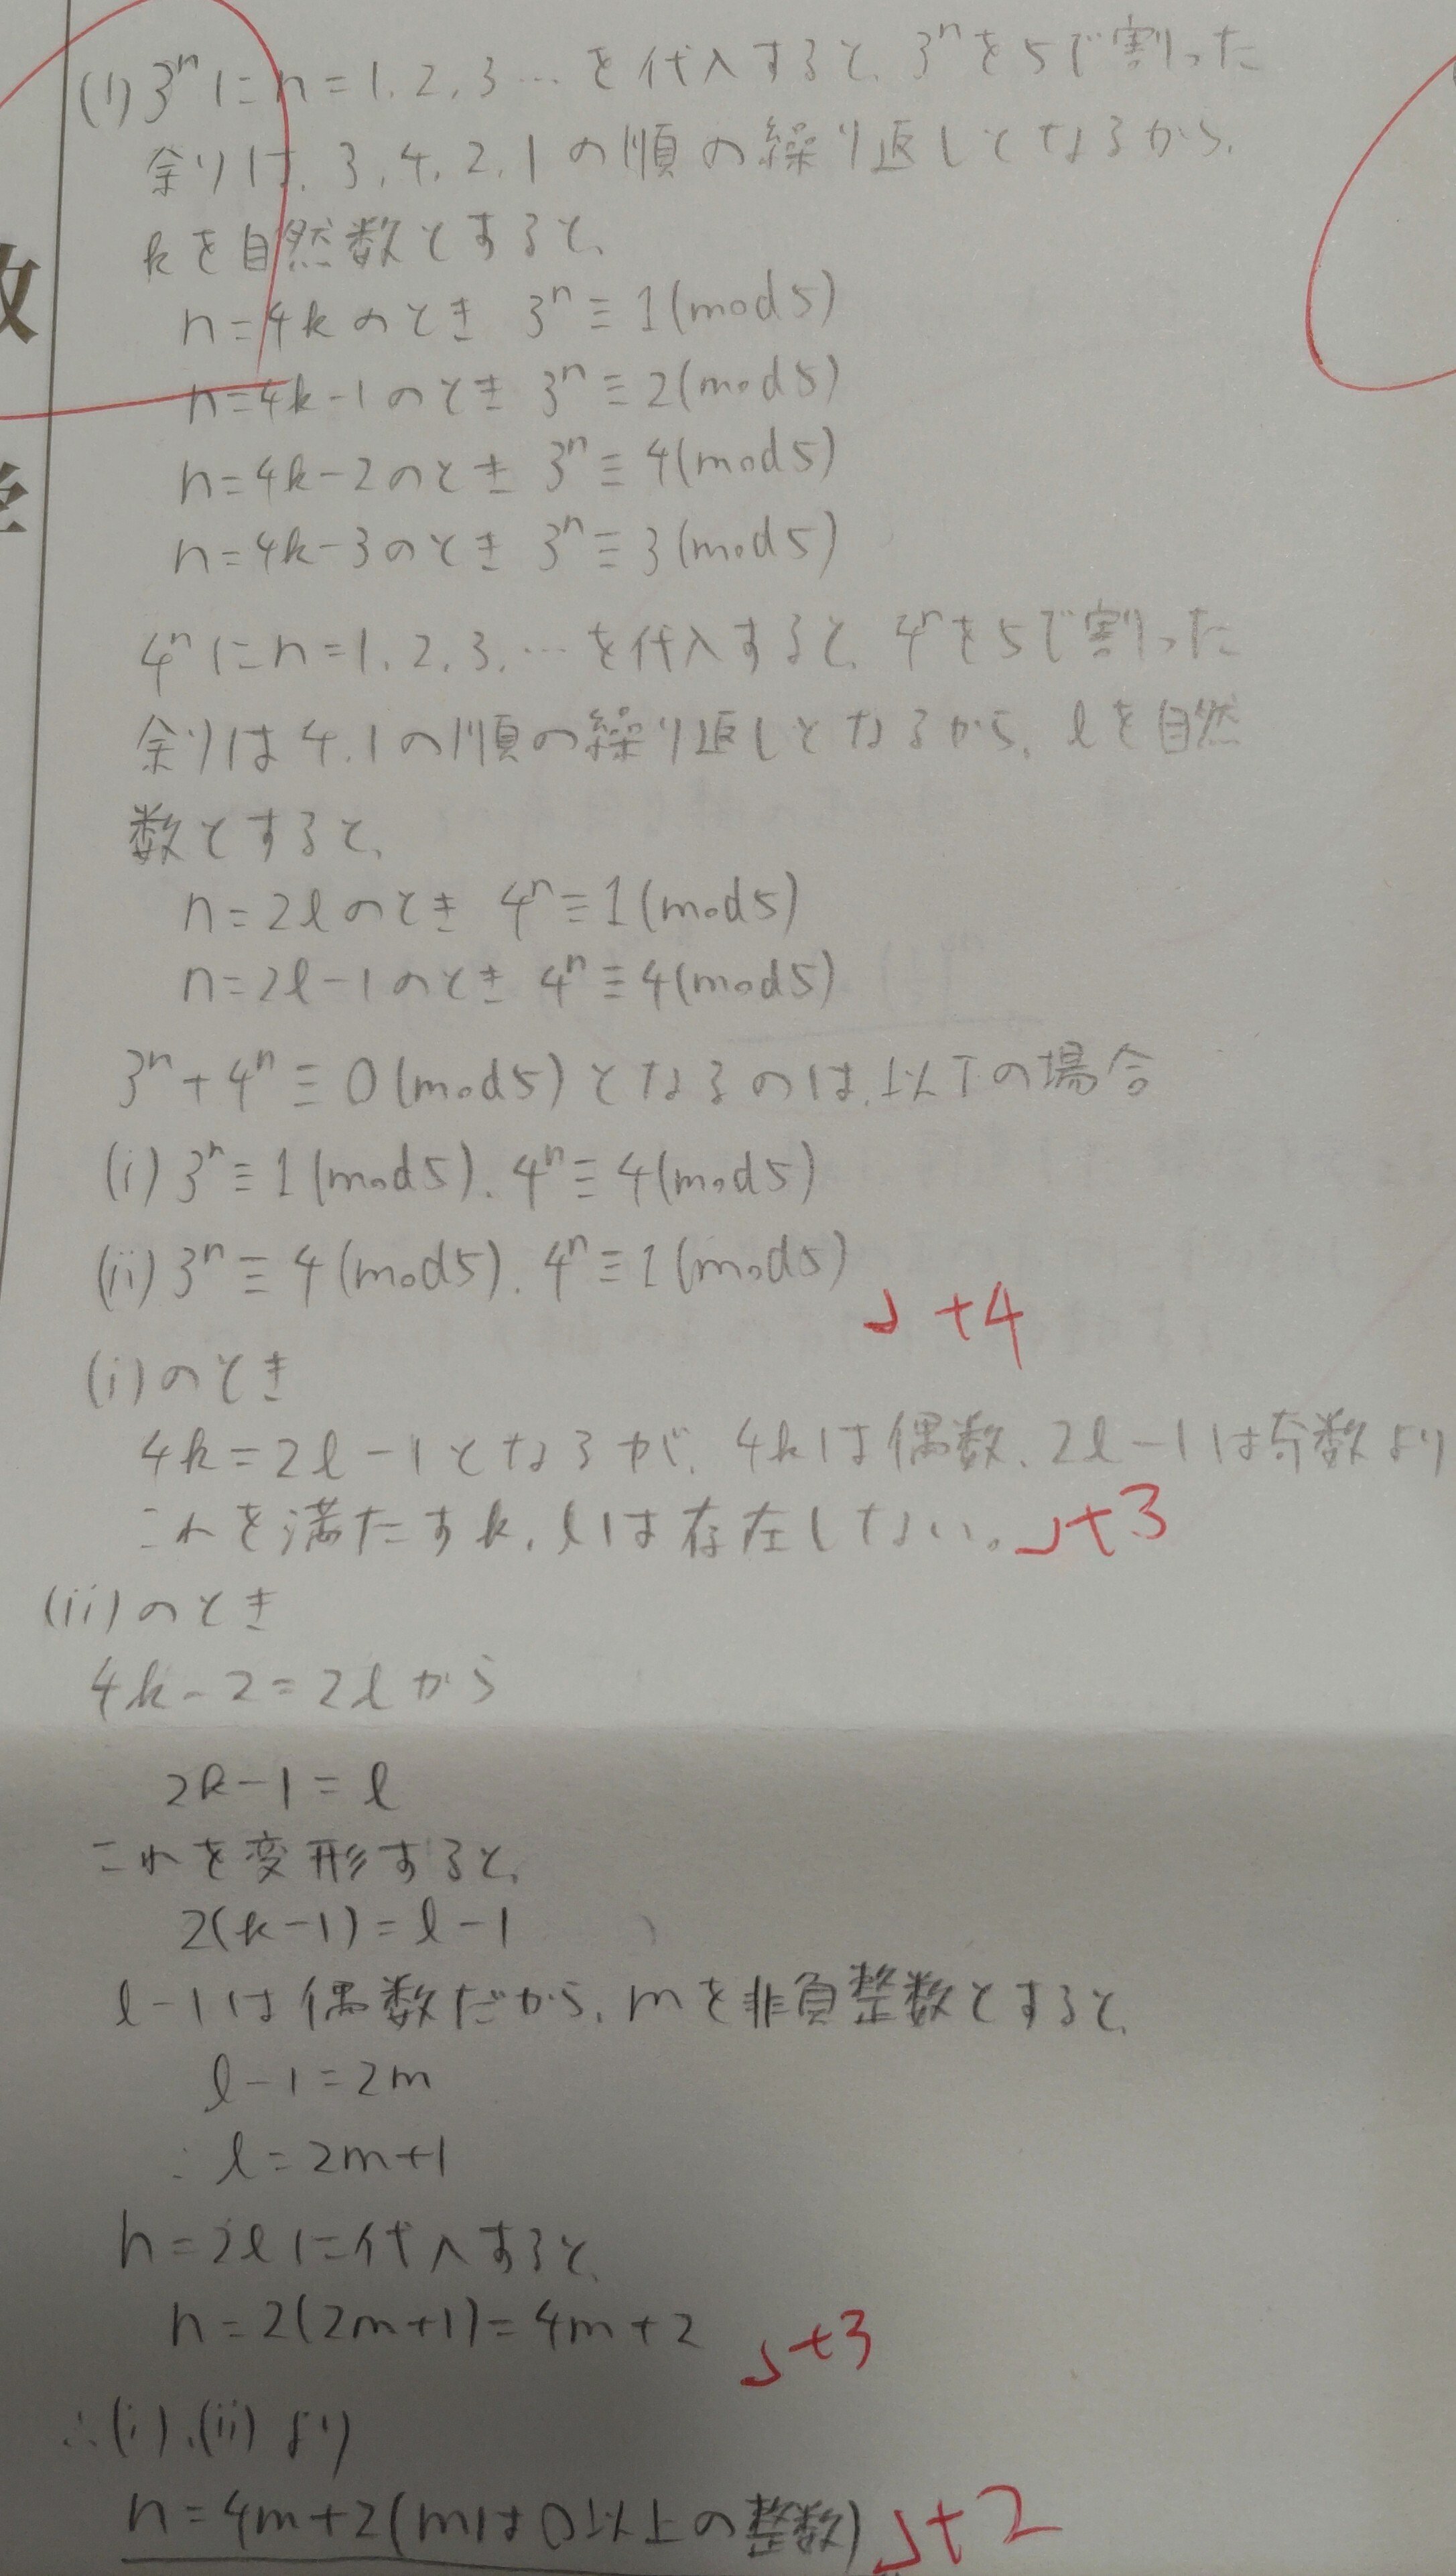 (1) 3ⁿに n=1, 2, 3 … を代入すると、3ⁿを5で割った
余りは、3, 4, 2, 1 の順の繰り返しとなるから、
kを自然数とすると、
n=4kのとき 3ⁿ≡1(mod5)
n=4k-1のとき 3ⁿ≡2(mod5)
n=4k-2のとき 3ⁿ≡4(mod5)
n=4k-3のとき 3ⁿ≡3(mod5)
4ⁿに n=1, 2, 3, … を代入すると、4ⁿを5で割った
余りは4, 1の順の繰り返しとなるから、ℓを自然
数とすると、
n=2ℓのとき 4ⁿ≡1(mod5)
n=2ℓ-1のとき 4ⁿ≡4(mod5)
3ⁿ+4ⁿ≡0(mod5)となるのは、以下の場合
(i) 3ⁿ≡1(mod5), 4ⁿ≡4(mod5)
(ii) 3ⁿ≡4(mod5), 4ⁿ≡1(mod5)
+4
(i)のとき
4k=2ℓ-1となるが、4kは偶数、2ℓ-1は奇数より
これを満たすk, ℓは存在しない。 +3
(ii)のとき
4k-2=2ℓから
2k-1=ℓ
これを変形すると、
2(k-1)=ℓ-1
ℓ-1は偶数だから、mを非負整数とすると、
ℓ-1=2m
∴ℓ=2m+1
n=2ℓに代入すると、
n=2(2m+1)=4m+2 +3
∴(i),(ii)より
n=4m+2(mは0以上の整数) +2